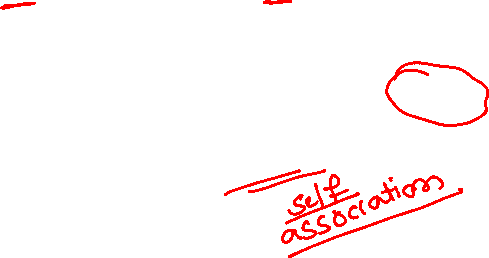 self
association